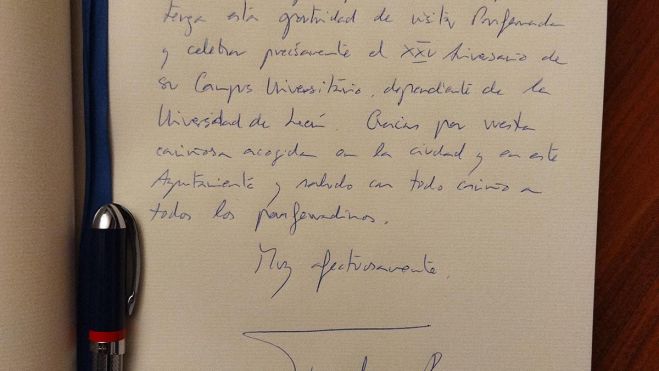 tenga esta oportunidad de visitar Ponferrada
y celebrar precisamente el XXV Aniversario de
su Campus Universitario, dependiente de la
Universidad de León. Gracias por vuestra
cariñosa acogida en la ciudad y en este
Ayuntamiento y saludo con todo cariño a
todos los ponferradinos.
Muy afectuosamente,